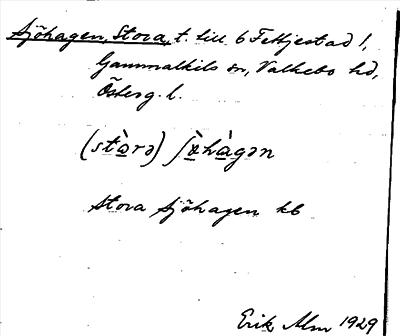 Sjöhagen, Stora, t. till 6 Fettjestad 1,
Gammalkils sn, Valkebo hd,
Österg. l.
(stò̱rə) ʃø̱̀hà̱gən
Stora Sjöhagen kb
Erik Alm 1929